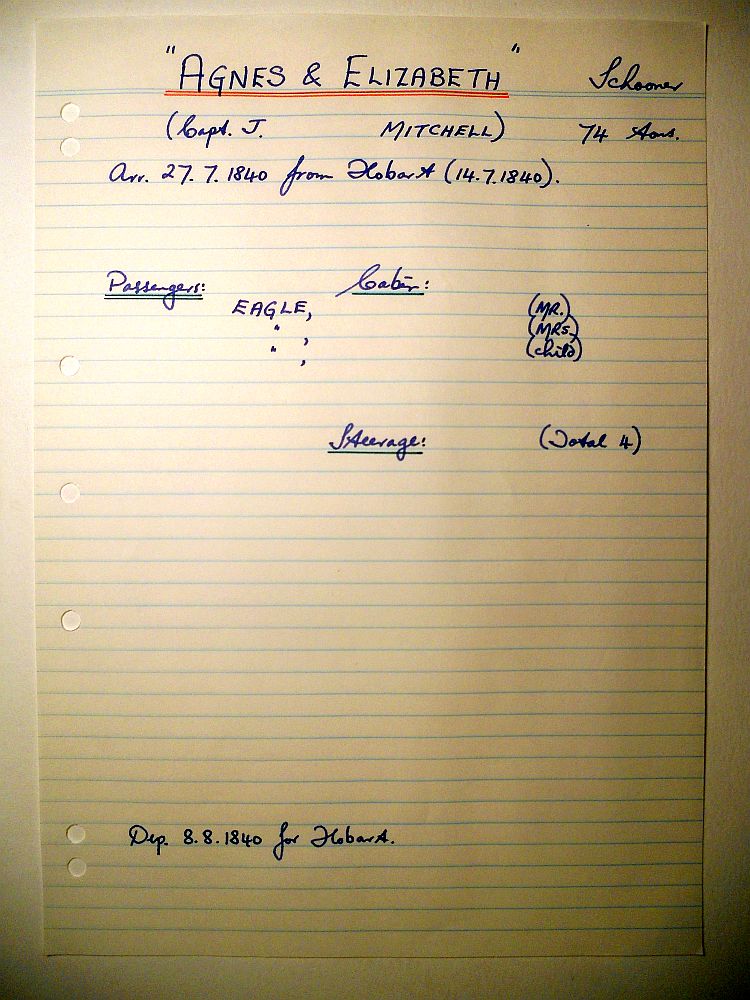 "AGNES & ELIZABETH" Schooner
(Capt. J. MITCHELL) 74 tons.
Arr. 27.7.1840 from Hobart (14.7.1840).
Passengers: Cabin:
EAGLE, (MR.)
" , (MRS.)
" , (child)
Steerage: (Total 4)
Dep. 8.8.1840 for Hobart.